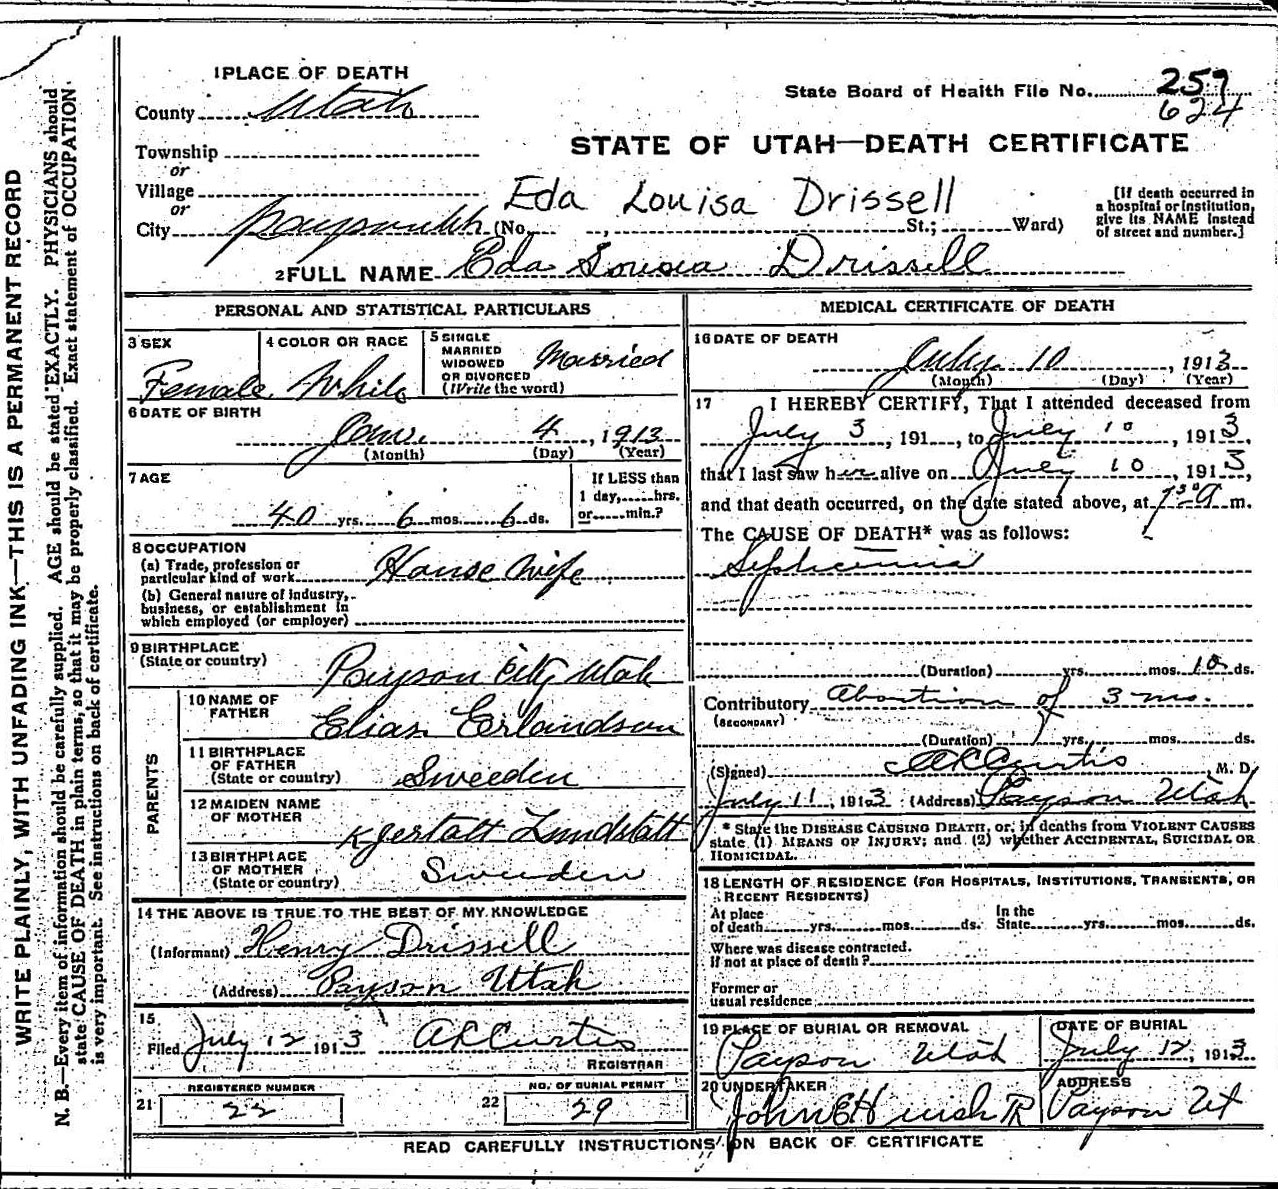 WRITE PLAINLY, WITH UNFADING INK—THIS IS A PERMANENT RECORD
N. B.—Every item of information should be carefully supplied. AGE should be stated EXACTLY. PHYSICIANS should
state CAUSE OF DEATH in plain terms, so that it may be properly classified. Exact statement of OCCUPATION
is very important. See instructions on back of certificate.
1 PLACE OF DEATH
County Utah
Township
or
Village
or
City
(No. , St.; Ward)
State Board of Health File No. 259
624
STATE OF UTAH—DEATH CERTIFICATE
Eda Louisa Drissell
[If death occurred in
a hospital or institution,
give its NAME instead
of street and number.]
2 FULL NAME Eda Louisa Drissell
PERSONAL AND STATISTICAL PARTICULARS
3 SEX
Female
4 COLOR OR RACE
White
5 SINGLE
MARRIED
WIDOWED
OR DIVORCED
(Write the word)
Married
6 DATE OF BIRTH
Jan. 4, 1913
(Month) (Day) (Year)
7 AGE
40 yrs. 6 mos. 6 ds.
If LESS than
1 day, hrs.
or min.?
8 OCCUPATION
(a) Trade, profession or
particular kind of work House Wife
(b) General nature of industry,
business, or establishment in
which employed (or employer)
9 BIRTHPLACE
(State or country)
Payson City Utah
PARENTS
10 NAME OF
FATHER
Elias Erlandson
11 BIRTHPLACE
OF FATHER
(State or country)
Sweeden
12 MAIDEN NAME
OF MOTHER
Kjerstatt Lundstatt
13 BIRTHPLACE
OF MOTHER
(State or country)
Sweeden
14 THE ABOVE IS TRUE TO THE BEST OF MY KNOWLEDGE
(Informant) Henry Drissell
(Address) Payson Utah
15
Filed July 12 1913 A L Curtis
REGISTRAR
REGISTERED NUMBER
21 22
NO. OF BURIAL PERMIT
22 29
MEDICAL CERTIFICATE OF DEATH
16 DATE OF DEATH
July 10, 1913
(Month) (Day) (Year)
17 I HEREBY CERTIFY, That I attended deceased from
July 3, 191 , to July 10, 1913,
that I last saw her alive on July 10, 1913,
and that death occurred, on the date stated above, at 7 30 A m.
The CAUSE OF DEATH* was as follows:
(Duration) yrs. mos. 10 ds.
Contributory Abortion of 3 mo.
(SECONDARY)
(Duration) yrs. mos. ds.
(Signed) A L Curtis M. D.
July 11, 1913 (Address) Payson Utah
* State the DISEASE CAUSING DEATH, or, in deaths from VIOLENT CAUSES
state (1) MEANS OF INJURY; and (2) whether ACCIDENTAL, SUICIDAL OR
HOMICIDAL.
18 LENGTH OF RESIDENCE (FOR HOSPITALS, INSTITUTIONS, TRANSIENTS, OR
RECENT RESIDENTS)
At place
of death yrs. mos. ds.
In the
State yrs. mos. ds.
Where was disease contracted.
If not at place of death?
Former or
usual residence
19 PLACE OF BURIAL OR REMOVAL
Payson Utah
DATE OF BURIAL
July 12, 1913
20 UNDERTAKER
John E Huish
ADDRESS
Payson Ut
READ CAREFULLY INSTRUCTIONS ON BACK OF CERTIFICATE